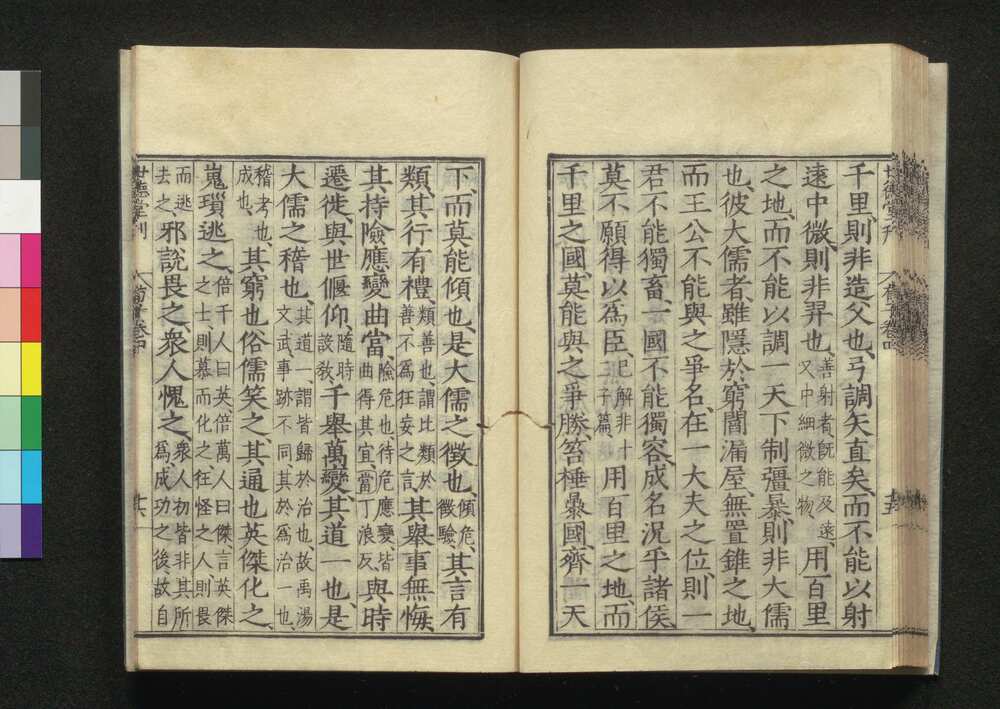 千里、則非造父也、弓調矢直矣、而不能以射
遠中微、則非羿也、善射者、既能及遠、又中細微之物、用百里
之地、而不能以調一天下制彊暴、則非大儒
也、彼大儒者、雖隱於窮閻漏屋、無置錐之地、
而王公不能與之爭名、在一大夫之位、則一
君不能獨畜、一國不能獨容、成名況乎諸侯、
莫不願得以爲臣、已解非十二子篇、用百里之地、而
千里之國、莫能與之爭勝、笞棰暴國、齊一天
下、而莫能傾也、是大儒之徵也、傾危、徵驗、其言有
類、其行有禮、類善也、謂比類於善、不爲狂妄之言、其舉事無悔、
其持險應變曲當、險危也、待危應變、皆曲得其宜、當丁浪反、與時
遷徙、與世偃仰、隨時設敎、千舉萬變、其道一也、是
大儒之稽也、其道一、謂皆歸於治也、故禹湯文武、事跡不同、其於爲治一也、
稽考也、成也、其窮也俗儒笑之、其通也英傑化之、
嵬瑣逃之、倍千人曰英、倍萬人曰傑、言英傑之士、則慕而化之、狂怪之人、則畏
而逃去之、邪說畏之、衆人愧之、衆人初皆非其所爲、成功之後、故自
世德堂刊
荀子卷四